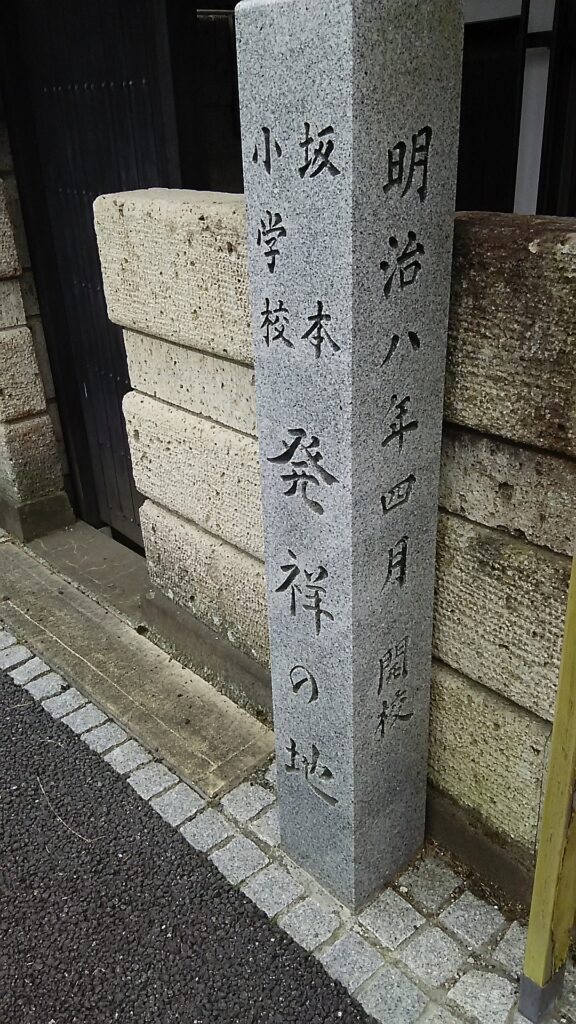 坂本
小学校
発祥の地
明治八年四月 開校